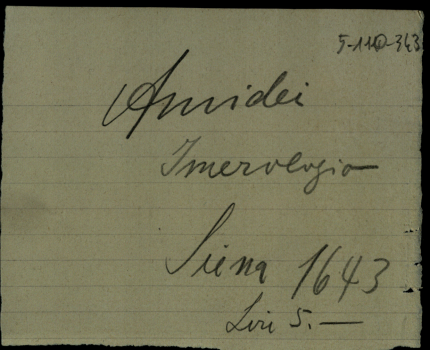 5-110-343
Amidei
Imerologio
Siena 1643
Liri 5.—